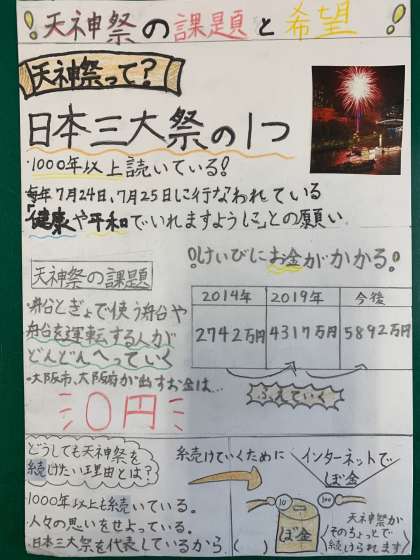 天神祭の課題と希望
天神祭って?
日本三大祭の1つ
・1000年以上読いている!
毎年7月24日、7月25日に行なわれている
「健康や平和でいれますように」との願い
けいびにお金がかかる
天神祭の課題
2014年 2019年 今後
2742万円 4317万円 5892万円
ふえていく
・船とぎょで使う船や
船を運転する人が
どんどんへっていく
・大阪市、大阪府が出すお金は…
0円
どうしても天神祭を
続けたい理由とは?
・1000年以上も続いている。
・人々の思いをせよっている。
・日本三大祭を代表しているから
続けていくために
インターネットで
ぼ金
10
100
ぼ金
天神祭が
そのちょっとで
続けられます